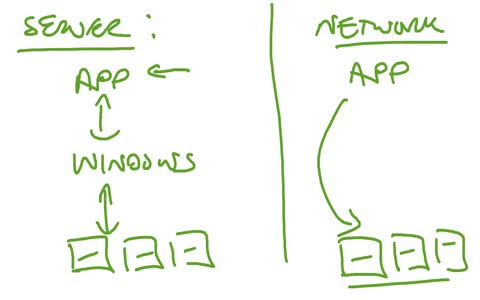 SERVER:
APP
WINDOWS
NETWORK
APP